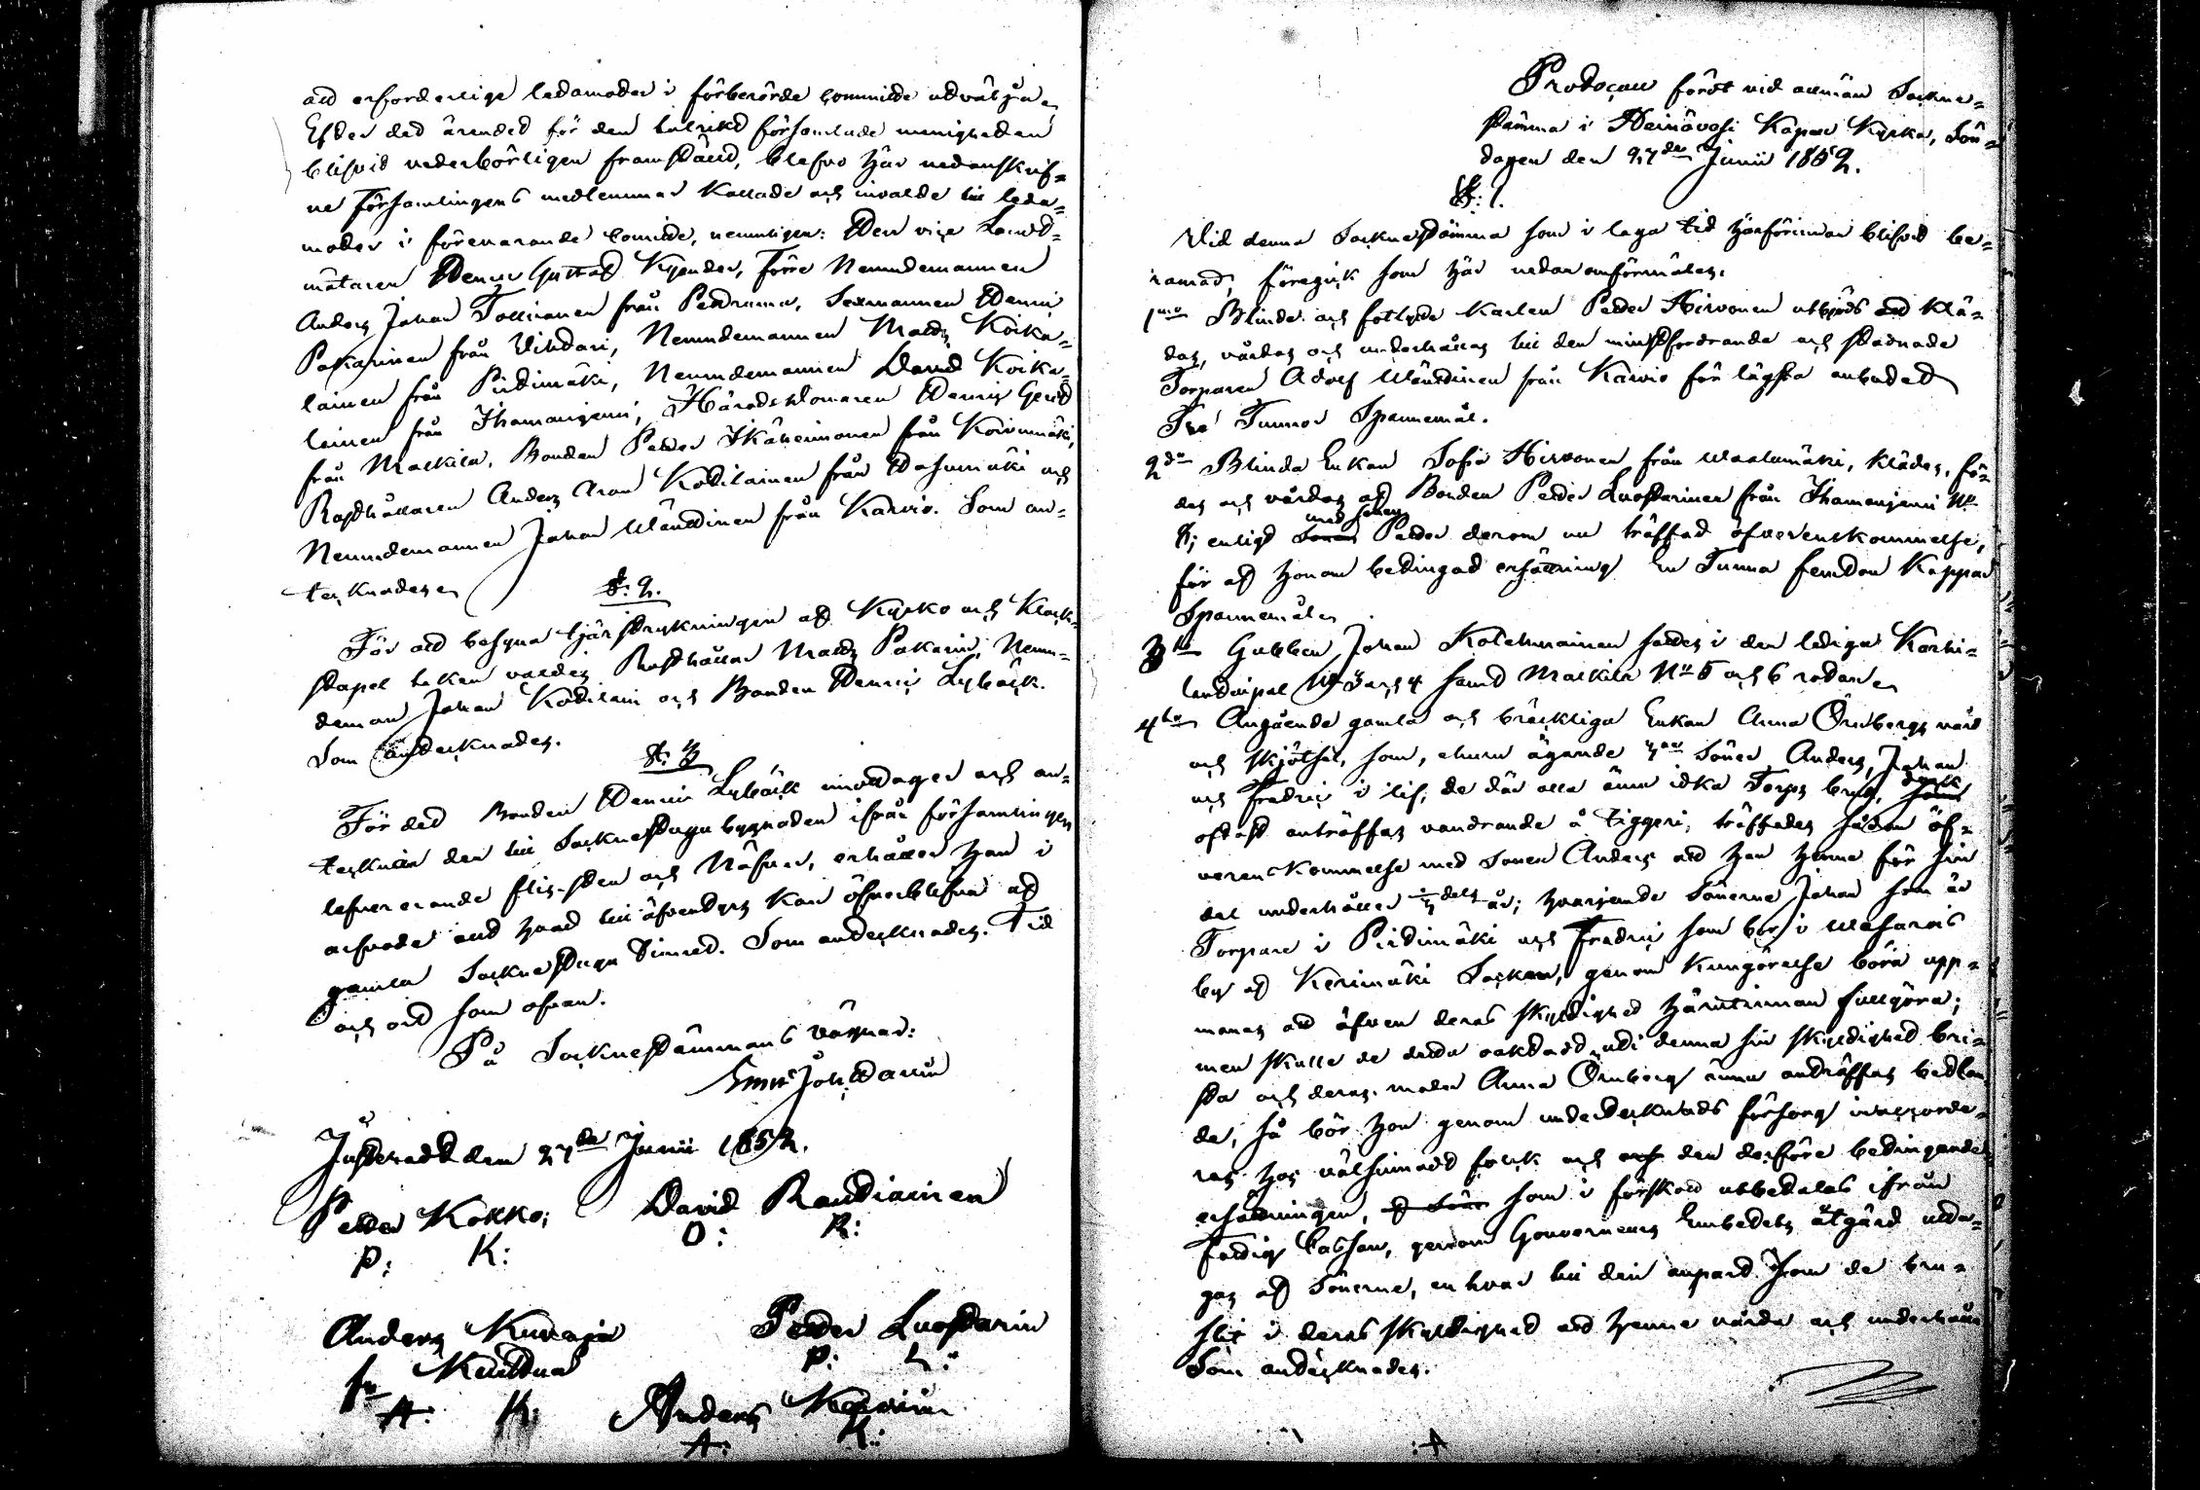 att erforderlige ledamöter i förberörde Committe utvälja.
Efter det ärendet för den talrikt församlade menigheten
blifvit vederbörligen framstäld, blefvo här nedanskrif=
ne Församlingens medlemmar kallade och invalde till leda=
möter i förevarande Comitte, nemnligen: Herr vice Landt=
mätaren Henric Gustaf Kyander, Förre Nemndemannen
Anders Johan Tolvanen från Petruma, Sexmannen Henric
Pakarinen från Vihtari, Nemndemannen Matts Koika=
lainen från Pirttimäki, Nemndemannen David Koika=
lainen från Ihamaniemi, Häradsdomaren Henric
från Malkila, Bonden Petter Ikäheimonen från Koivumäki,
Rusthållaren Anders Aron Kotilainen från Hasumäki och
Nemndemannen Johan Wänttinen från Karvio. Som an=
tecknades.
§: 2.
För att besyna tjärstrykningen af Kyrko och Klock=
stapel taken valdes Rusthållar Matts Pakarin, Nemn=
deman Johan Kotilain och Bonden Henric Lybäck.
Som antecknades.
§: 3
För det Bonden Henric Lybäck mottager och an=
tecknar den till Sockenstugu bygnaden ifrån församlingen
lefvererande stenen och Näfver, erhåller han i
arfvode allt hvad till äfventyrs kan öfverblefva af
gamla Sockenstugu Timret. Som antecknades. Tid
och ort som ofvan.
På Sockenstämmans vägnar:
Joh.
Justeradt den 27de Junii 1852.
Petter Kokko; David Rautiainen
P: K: D: R:
Anders Petter Luostarin
A: K: P: L:
Anders
A: K:
Protocoll fördt vid allmän Sockne=
stämma i Heinävesi Kapell Kyrka, Sön=
dagen den 27de Junii 1852.
§: 1.
Vid denna Sockenstämma som i laga tid härförinnan blifvit be=
ramad, föregick som här nedan omförmäles.
1mo Blinde och fotlyde Karlen Petter Hirvonen utbjöds att klä=
das, vårdas och underhållas till den minstfordrande och stadnade
Torparen Adolf Wänttinen från Karvio för lägsta anbudet
Två Tunnor Spannemål.
2do Blinda Enkan Sofia Hirvonen från Waalumäki, klädes, fö=
des och vårdas af Bonden Petter Luostarinen från Ihamaniemi No
8; enligt med sonen Petter derom nu träffad öfverenskommelse,
för af honom betingad ersättning En Tunna femton Kappar
Spannemål.
3tio Gubben Johan Kolehmainen sattes i den lediga Karhi=
landsipal No 3 och 4 samt Malkila No 5 och 6 rotar.
4to Angående gamla och bräckliga Enkan Anna Örnbergs vård
och skjötsel, som, ehuru ägande 3ne Söner Anders, Johan
och Fredric i lif, de där alla ännu idka Torps bruk, dock
oftast anträffas vandrande å tiggeri, träffades sådan öf=
verenskommelse med Sonen Anders att han henne för sin
del underhåller 1/3 dels år; hvarjemte Sönerne Johan som är
Torpare i Pirttimäki och Fredric som bor i Wesarais
by af Kerimäki Socken, genom kungörelse böra upp=
manas att äfven deras skyldighet härutinnan fullgöra;
men skulle de detta oaktadt uti denna sin skyldighet bri=
sta och deras moder Anna Örnberg ännu anträffas bettlan=
de, så bör hon genom undertecknads försorg inaccorde=
ras hos välsinnadt folk och den derföre betingande
ersättningen, som i förskott utbetalas ifrån
Fattig Cassan, genom Gouverneurs Embetets åtgärd utta=
gas af Sönerne, en hvar till den anpart som de bru=
stit i deras skyldighet att henne vårda och underhålla
Som antecknades.